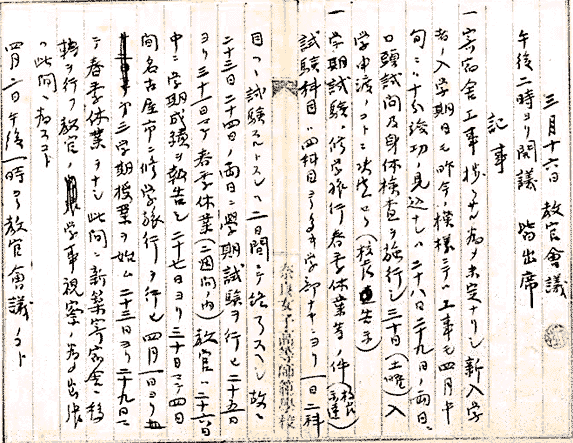 三月十六日 教官會議
午後二時ヨリ開議 皆出席
記事
一 寄宿舎工事捗ラザル為メ未定ナリシ新入学
者ノ入学期日モ昨今ノ模様ニテハ工事モ四月中
旬ニハ十分竣功ノ見込ナレハ二十八日二十九日ノ両日ニ
口頭試問及身体検査ヲ施行シ三十日(土曜)入
学申渡ノコトニ決定セリ(校長告示)
一 学期試験、修学旅行春季休業等ノ件
試験科目ハ四科目ヨリ多キ学部ナキニヨリ一日二科
目ツヽ試験スルトスレハ二日間ニテ終ルスヘシ故ニ
二十三日二十四日ノ両日ニ學期試験ヲ行ヒ二十五日
ヨリ三十一日マテ春季休業(一週間内)教官ハ二十六日
中ニ学期成績ヲ報告シ二十七日ヨリ三十日マテ四日
間名古屋市ニ修学旅行ヲ行ヒ四月一日ヨリ
第三学期授業ヲ始ム 二十三日ヨリ二十九日マ
テ春季休業ヲナシ此間ニ新築寄宿舎ニ移
轉ヲ行フ教官ノ学事視察ノ為メ出張
ハ此間ニ為スコト
四月二日午後一時ヨリ教官會議ノコト
奈良女子高等師範學校